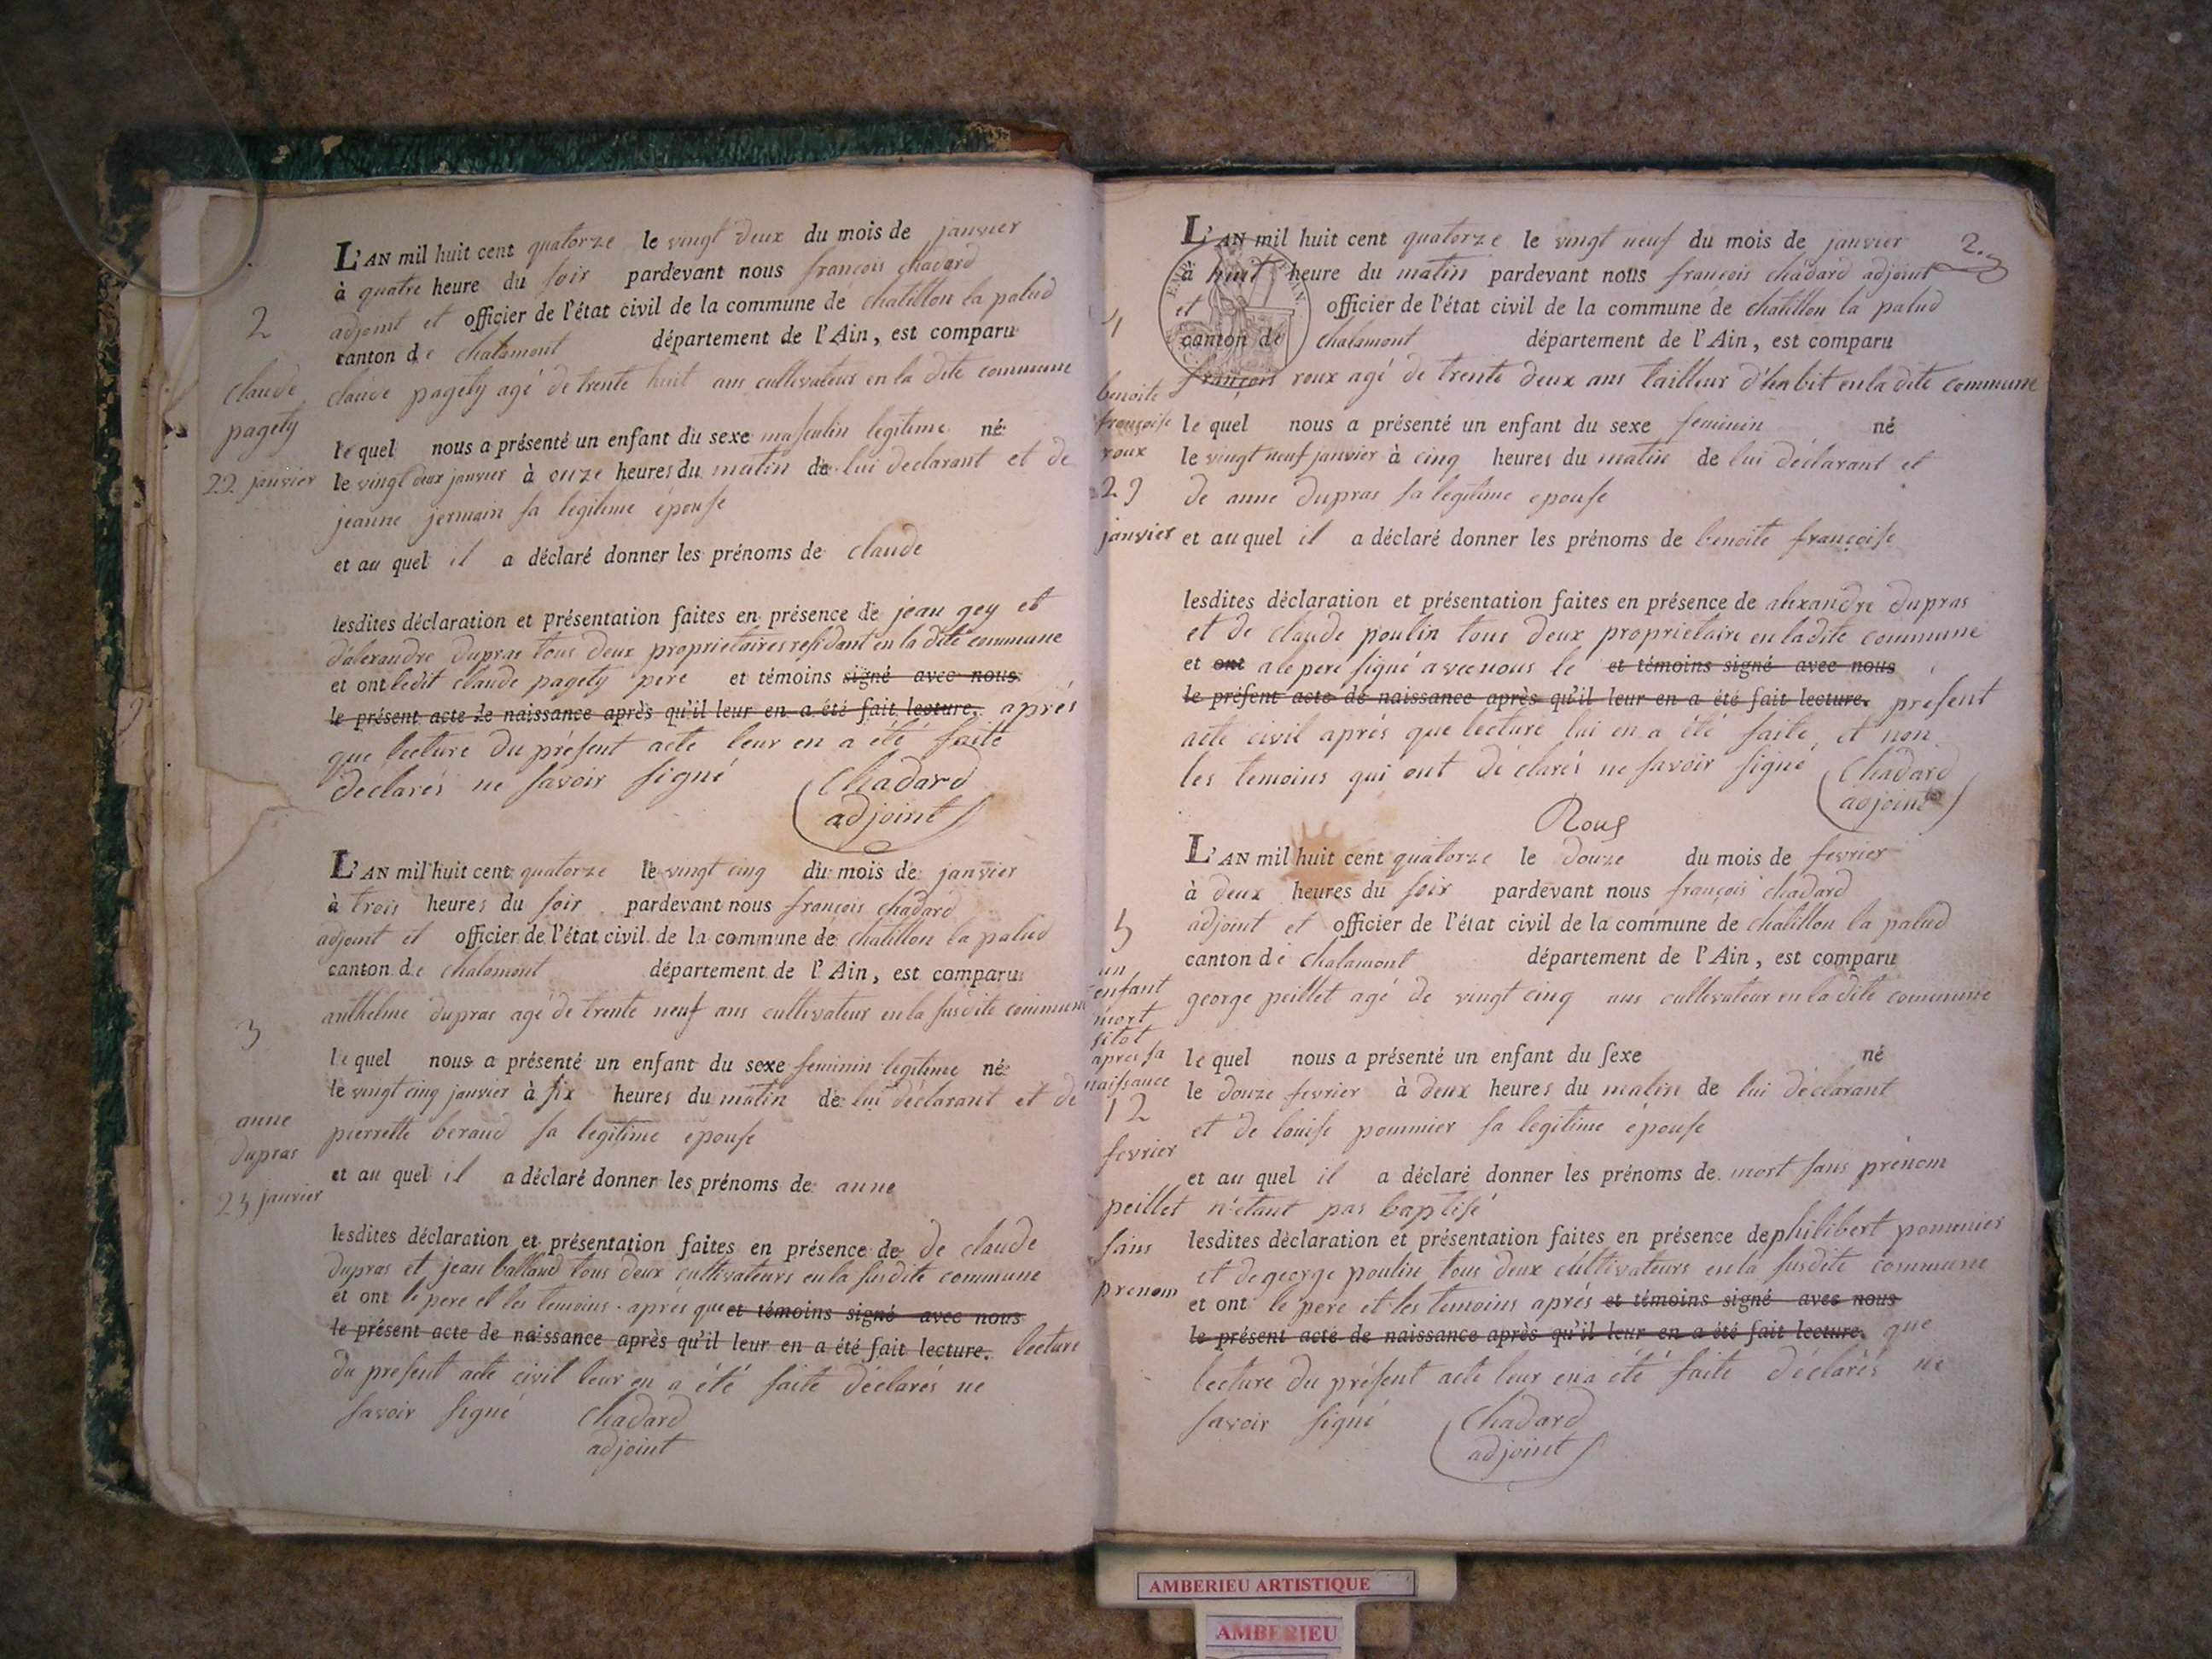 L'AN mil huit cent quatorze le vingt deux du mois de janvier
à quatre heure du soir pardevant nous françois chadard
adjoint et officier de l'état civil de la commune de chatillon la palud
canton de chalamont département de l'Ain, est comparu
claude pagety agé de trente huit ans cultivateur en la dite commune
le quel nous a présenté un enfant du sexe masculin legitime né
le vingt deux janvier à onze heures du matin de lui declarant et de
jeanne jermain sa legitime épouse
et au quel il a déclaré donner les prénoms de claude
lesdites déclaration et présentation faites en présence de jean gey et
d'alexandre dupras tous deux proprietaires residant en la dite commune
et ont ledit claude pagety pere et témoins signé avec nous
le présent acte de naissance après qu'il leur en a été fait lecture. après
que lecture du présent acte leur en a été faite
déclarés ne savoir signé
Chadard
adjoint
2
claude
pagety
22 janvier
L'AN mil huit cent quatorze le vingt cinq du mois de janvier
à trois heures du soir pardevant nous françois chadard
adjoint et officier de l'état civil de la commune de chatillon la palud
canton de chalamont département de l'Ain, est comparu
anthelme dupras agé de trente neuf ans cultivateur en la susdite commune
le quel nous a présenté un enfant du sexe feminin legitime né
le vingt cinq janvier à six heures du matin de lui déclarant et de
pierrette beraud sa legitime epouse
et au quel il a déclaré donner les prénoms de anne
lesdites déclaration et présentation faites en présence de de claude
dupras et jean balland tous deux cultivateurs en la susdite commune
et ont le pere et les temoins après que et témoins signé avec nous
le présent acte de naissance après qu'il leur en a été fait lecture. lecture
du present acte civil leur en a été faite déclarés ne
savoir signé
Chadard
adjoint
3
anne
dupras
25 janvier
2.
L'AN mil huit cent quatorze le vingt neuf du mois de janvier
à huit heure du matin pardevant nous françois chadard adjoint
et officier de l'état civil de la commune de chatillon la palud
canton de chalamont département de l'Ain, est comparu
françois roux agé de trente deux ans tailleur d'habit en la dite commune
le quel nous a présenté un enfant du sexe feminin né
le vingt neuf janvier à cinq heures du matin de lui déclarant et
de anne dupras sa legitime epouse
et au quel il a déclaré donner les prénoms de benoite françoise
lesdites déclaration et présentation faites en présence de alexandre dupras
et de claude poulin tous deux proprietaire en la dite commune
et ont a le pere signé avec nous le et témoins signé avec nous
le présent acte de naissance après qu'il leur en a été fait lecture. présent
acte civil après que lecture lui en a été faite, et non
les temoins qui ont déclarés ne savoir signé
Chadard
adjoint
Roux
4
benoite
françoise
roux
29
janvier
L'AN mil huit cent quatorze le douze du mois de fevrier
à deux heures du soir pardevant nous françois chadard
adjoint et officier de l'état civil de la commune de chatillon la palud
canton de chalamont département de l'Ain, est comparu
george peillet agé de vingt cinq ans cultivateur en la dite commune
le quel nous a présenté un enfant du sexe né
le douze fevrier à deux heures du matin de lui déclarant
et de louise pommier sa legitime épouse
et au quel il a déclaré donner les prénoms de mort sans prénom
n'étant pas baptisé
lesdites déclaration et présentation faites en présence de philibert pommier
et de george poulin tous deux cultivateurs en la susdite commune
et ont le pere et les temoins après et témoins signé avec nous
le présent acte de naissance après qu'il leur en a été fait lecture. que
lecture du présent acte leur en a été faite déclarés ne
savoir signé
Chadard
adjoint
5
un
enfant
mort
sitot
apres sa
naissance
12
fevrier
peillet
sans
prenom
AMBERIEU ARTISTIQUE
AMBERIEU